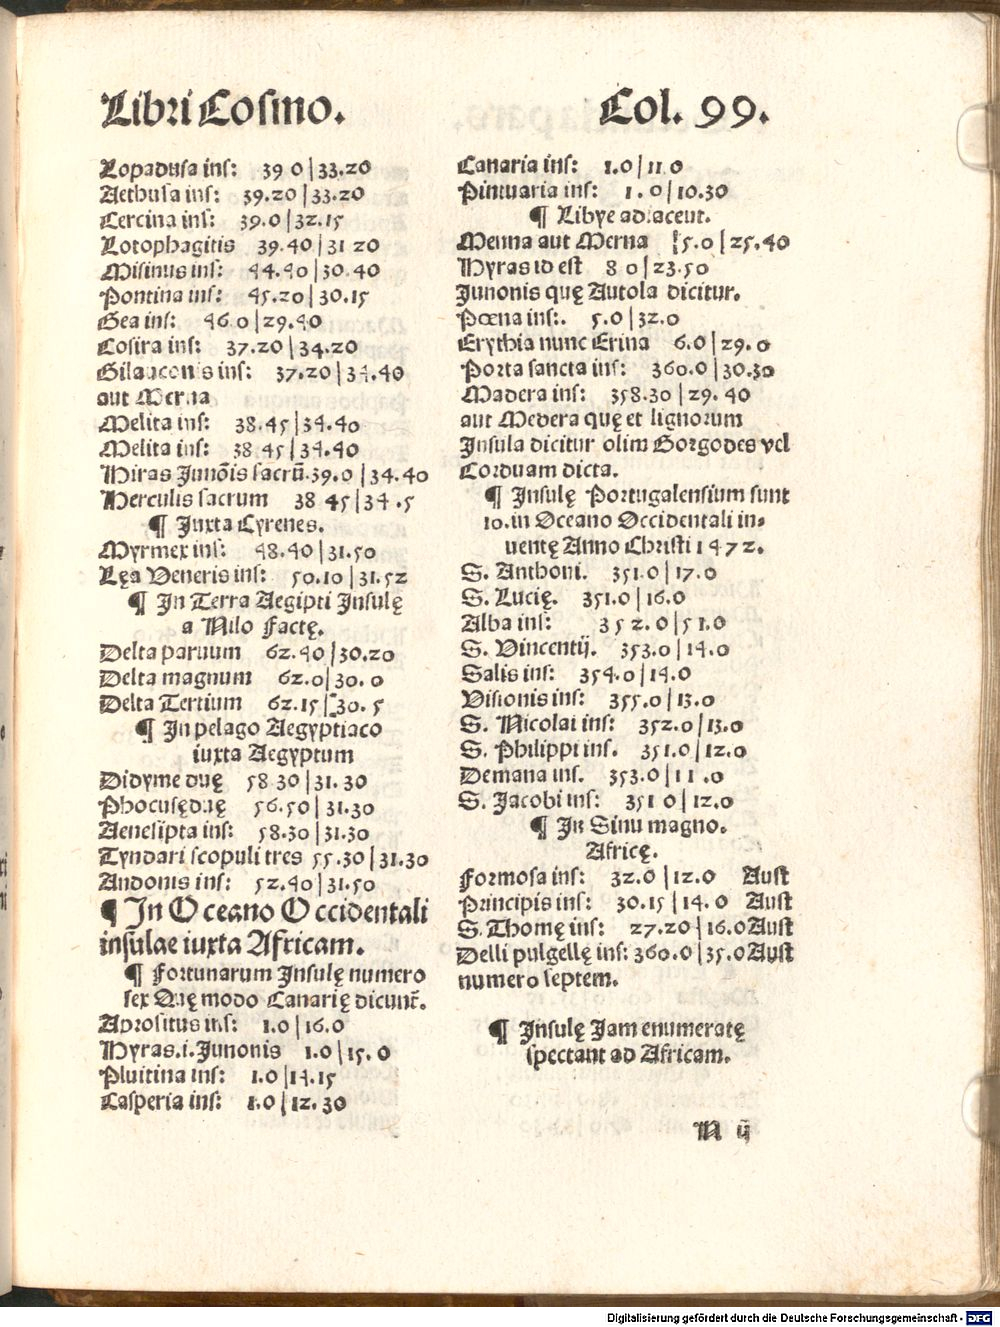 Libri Cosmo.
Col. 99.
Lopadusa ins: 39 0|33.20
Aethusa ins: 39.20|33.20
Cercina ins: 39.0|32.15
Lotophagitis 39.40|31 20
Misinus ins: 44.40|30.40
Pontina ins: 45.20|30.15
Gea ins: 46 0|29.40
Cosira ins: 37.20|34.20
Gilauconis ins: 37.20|34.40
aut Merna
Melita ins: 38.45|34.40
Melita ins: 38 45|34.40
Hiras Junõis sacrũ.39.0|34.40
Herculis sacrum 38 45|34.5
¶ Juxta Cyrenes.
Myrmex ins: 48.40|31.50
Lęa Veneris ins: 50.10|31.52
¶ In Terra Aegipti Insulę
a Nilo factę.
Delta paruum 62.40|30.20
Delta magnum 62.0|30.0
Delta Tertium 62.15|30.5
¶ In pelago Aegyptiaco
iuxta Aegyptum
Didyme duę 58 30|31.30
Phocusę duę 56.50|31.30
Aenesipta ins: 58.30|31.30
Tyndari scopuli tres 55.30|31.30
Andonis ins: 52.40|31.50
¶ In Oceano Occidentali
insulae iuxta Africam.
¶ Fortunarum Insulę numero
sex Quę modo Canarię dicunt̃.
Aprositus ins: 1.0|16.0
Hyras.i.Junonis 1.0|15.0
Pluitina ins: 1.0|14.15
Casperia ins: 1.0|12.30
Canaria ins: 1.0|11 0
Pintuaria ins: 1.0|10.30
¶ Libye adiacent.
Menna aut Merna 5.0|25.40
Hyras id est 8 0|23.50
Junonis quę Autola dicitur.
Pœna ins:. 5.0|32.0
Erythia nunc Erina 6.0|29.0
Porta sancta ins: 360.0|30.30
Madera ins: 358.30|29.40
aut Medera quę et lignorum
Insula dicitur olim Gorgodes vel
Corduam dicta.
¶ Insulę Portugalensium sunt
10.in Oceano Occidentali in-
uentę Anno Christi 1472.
S. Anthoni. 351.0|17.0
S. Lucię. 351.0|16.0
Alba ins: 352.0|51.0
S. Vincentij. 353.0|14.0
Salis ins: 354.0|14.0
Visionis ins: 355.0|13.0
S. Nicolai ins: 352.0|13.0
S. Philippi ins. 351.0|12.0
Demana ins. 353.0|11.0
S. Jacobi ins: 351 0|12.0
¶ In Sinu magno.
Africę.
Formosa ins: 32.0|12.0 Aust
Principis ins: 30.15|14.0 Aust
S. Thomę ins: 27.20|16.0 Aust
Delli pulgellę ins: 360.0|35.0 Aust
numero septem.
¶ Insulę Jam enumeratę
spectant ad Africam.
N ij
Digitalisierung gefördert durch die Deutsche Forschungsgemeinschaft - DFG